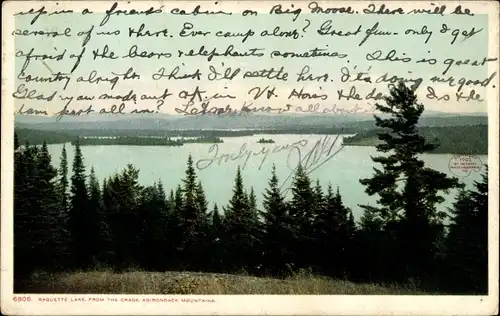 up in a friend's cabin on Big Moose. There will be
several of us there. Ever camp alone? Great fun - only I get
afraid of the bears & elephants sometimes. This is great
country alright. I think I'll settle here. I's doing me good.
Glad you made out O.K. in Vt. How's the
part all in? Let me know all about
6906 RAQUETTE LAKE, FROM THE CRAGS, ADIRONDACK MOUNTAINS.